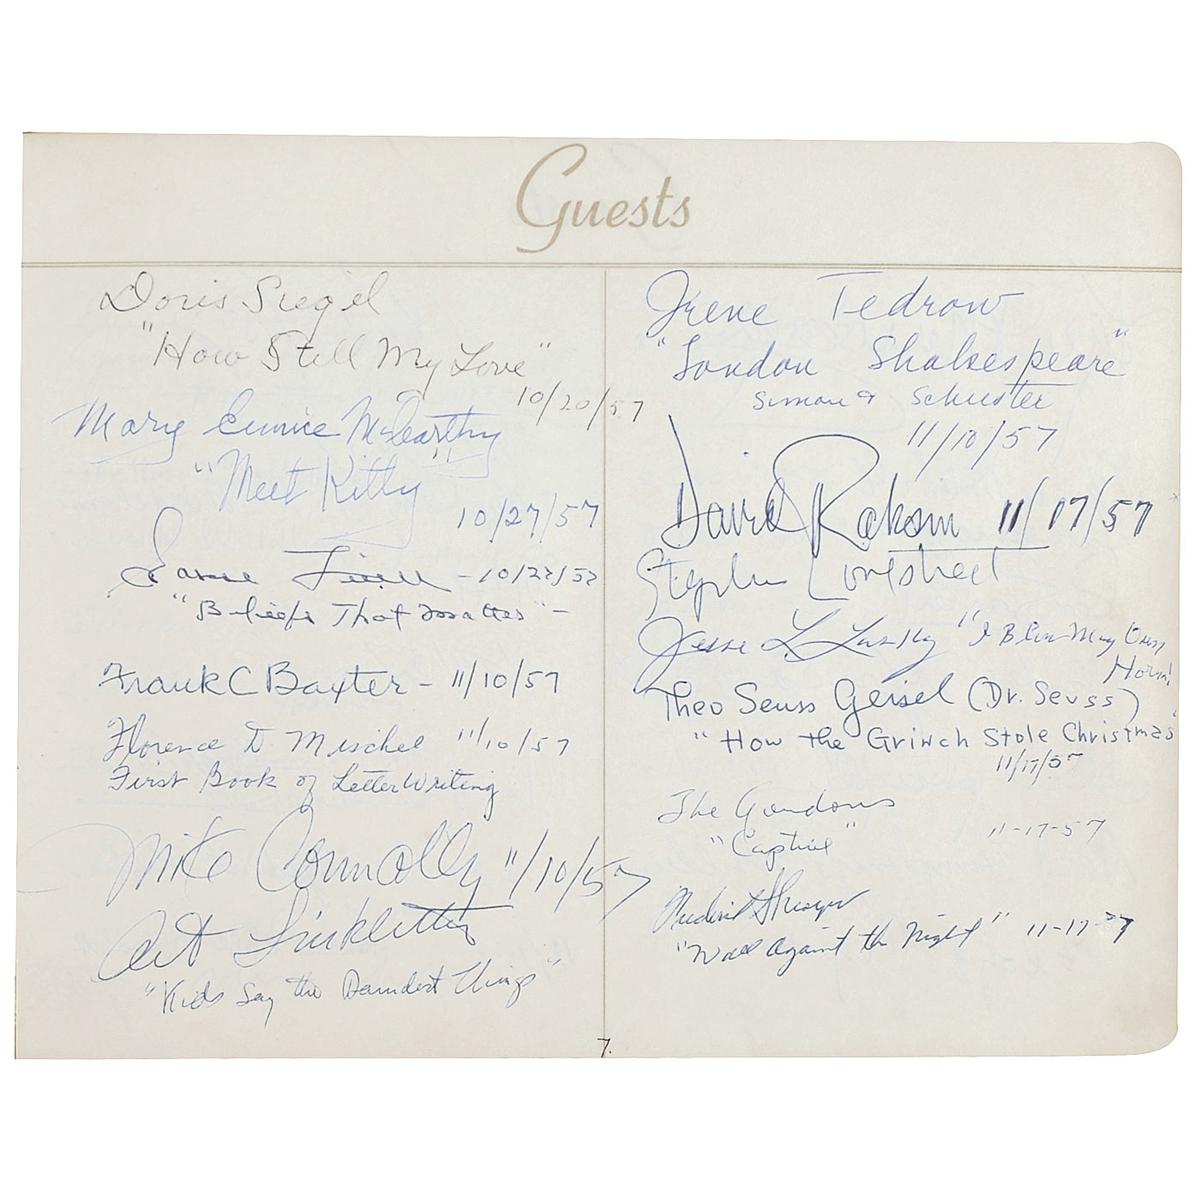 Guests
Doris Siegel
"How Still My Love"
10/20/57
Mary Eunice McCarthy
"Meet Kitty"
10/27/57
"Beliefs That Matter" –
Frank C Baxter – 11/10/57
Florence D Mischel 11/10/57
First Book of Letter Writing
Mike Connolly 11/10/57
Art Linkletter
"Kids Say the Darndest Things"
Irene Tedrow
"London Shakespeare"
Simon & Schuster
11/10/57
David Raksin 11/17/57
Stephen Longstreet
Jesse L Lasky "I Blow My Own
Horn"
Theo Seuss Geisel (Dr. Seuss)
"How the Grinch Stole Christmas"
11/17/57
The Gordons
"Captive" 11-17-57
"Wall Against the Night" 11-17-57
7.